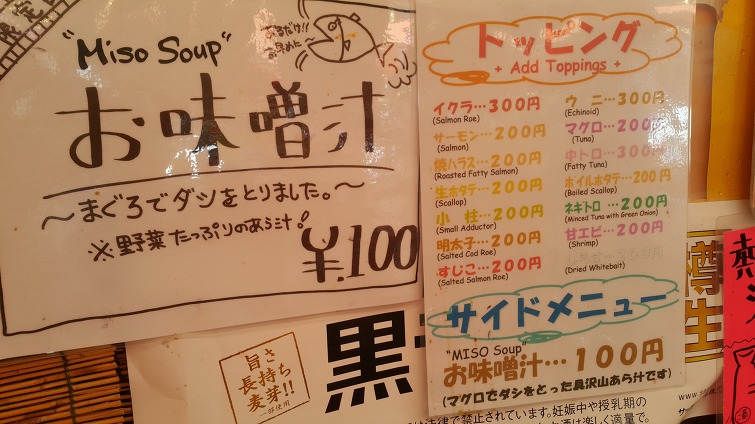 限定
"Miso Soup"
あるだけ!!
お早めに〜
お味噌汁
〜まぐろでダシをとりました。〜
※野菜たっぷりのあら汁!
¥100
トッピング
+ Add Toppings +
イクラ…300円
(Salmon Roe)
サーモン…200円
(Salmon)
焼ハラス…200円
(Roasted Fatty Salmon)
生ホタテ…200円
(Scallop)
小柱…200円
(Small Adductor)
明太子…200円
(Salted Cod Roe)
すじこ…200円
(Salted Salmon Roe)
ウニ…300円
(Echinoid)
マグロ…200円
(Tuna)
中トロ…300円
(Fatty Tuna)
ボイルホタテ…200円
(Boiled Scallop)
ネギトロ…200円
(Minced Tuna with Green Onion)
甘エビ…200円
(Shrimp)
(Dried Whitebait)
サイドメニュー
"MISO Soup"
お味噌汁…100円
(マグロでダシをとった具沢山あら汁です)
旨さ
長持ち
麦芽!!
一部使用
黒
樽
生
熱
は法律で禁止されています。妊娠中や授乳期の
お酒は楽しく適量で。